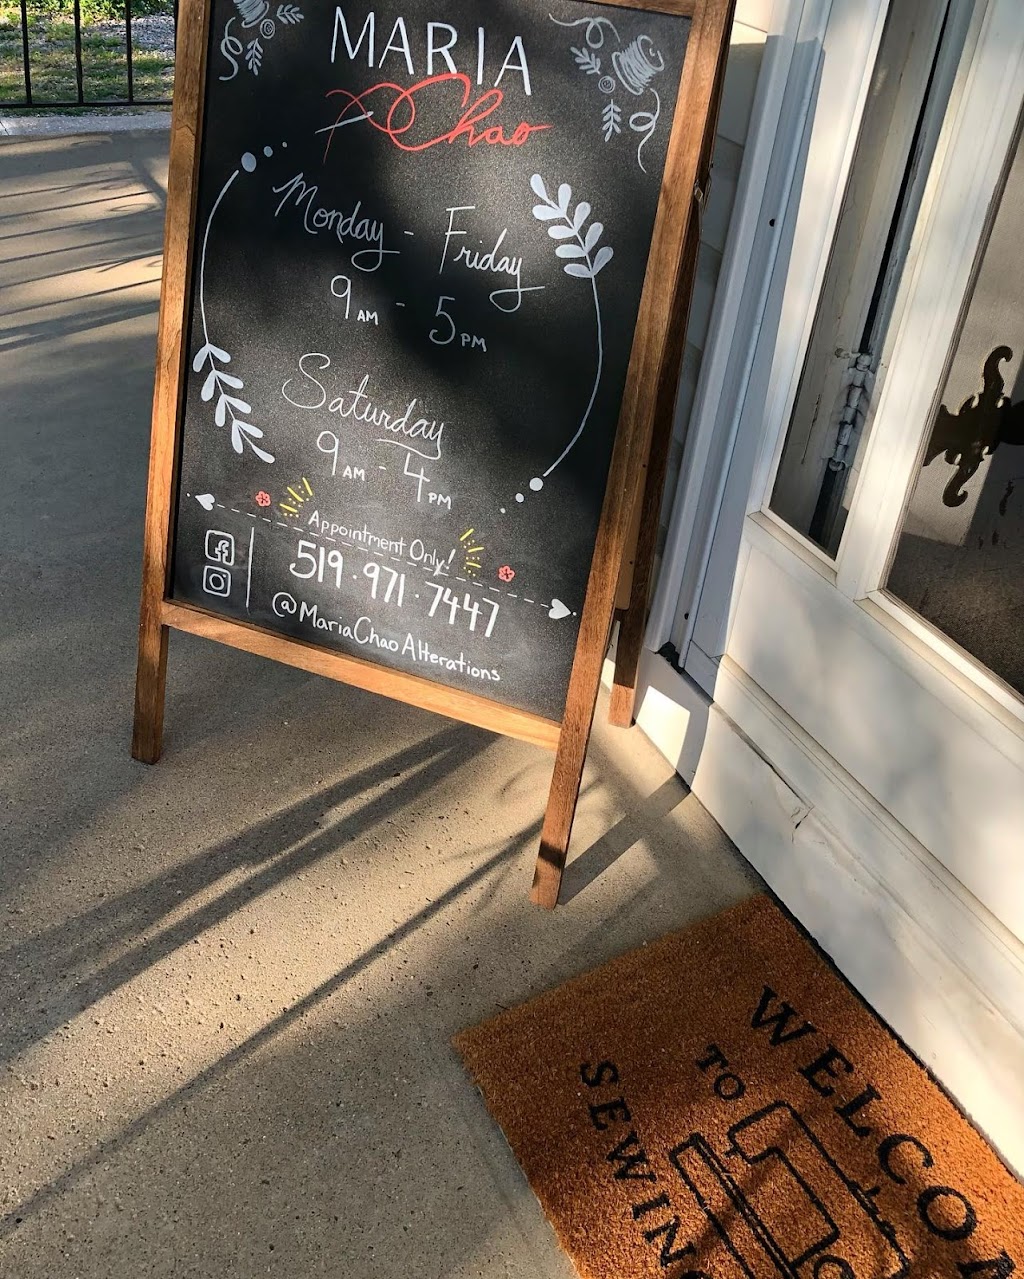 MARIA
Chao
Monday - Friday
9 AM - 5 PM
Saturday
9 AM - 4 PM
Appointment Only!
519·971·7447
@MariaChaoAlterations
WELCOM
TO
SEWING